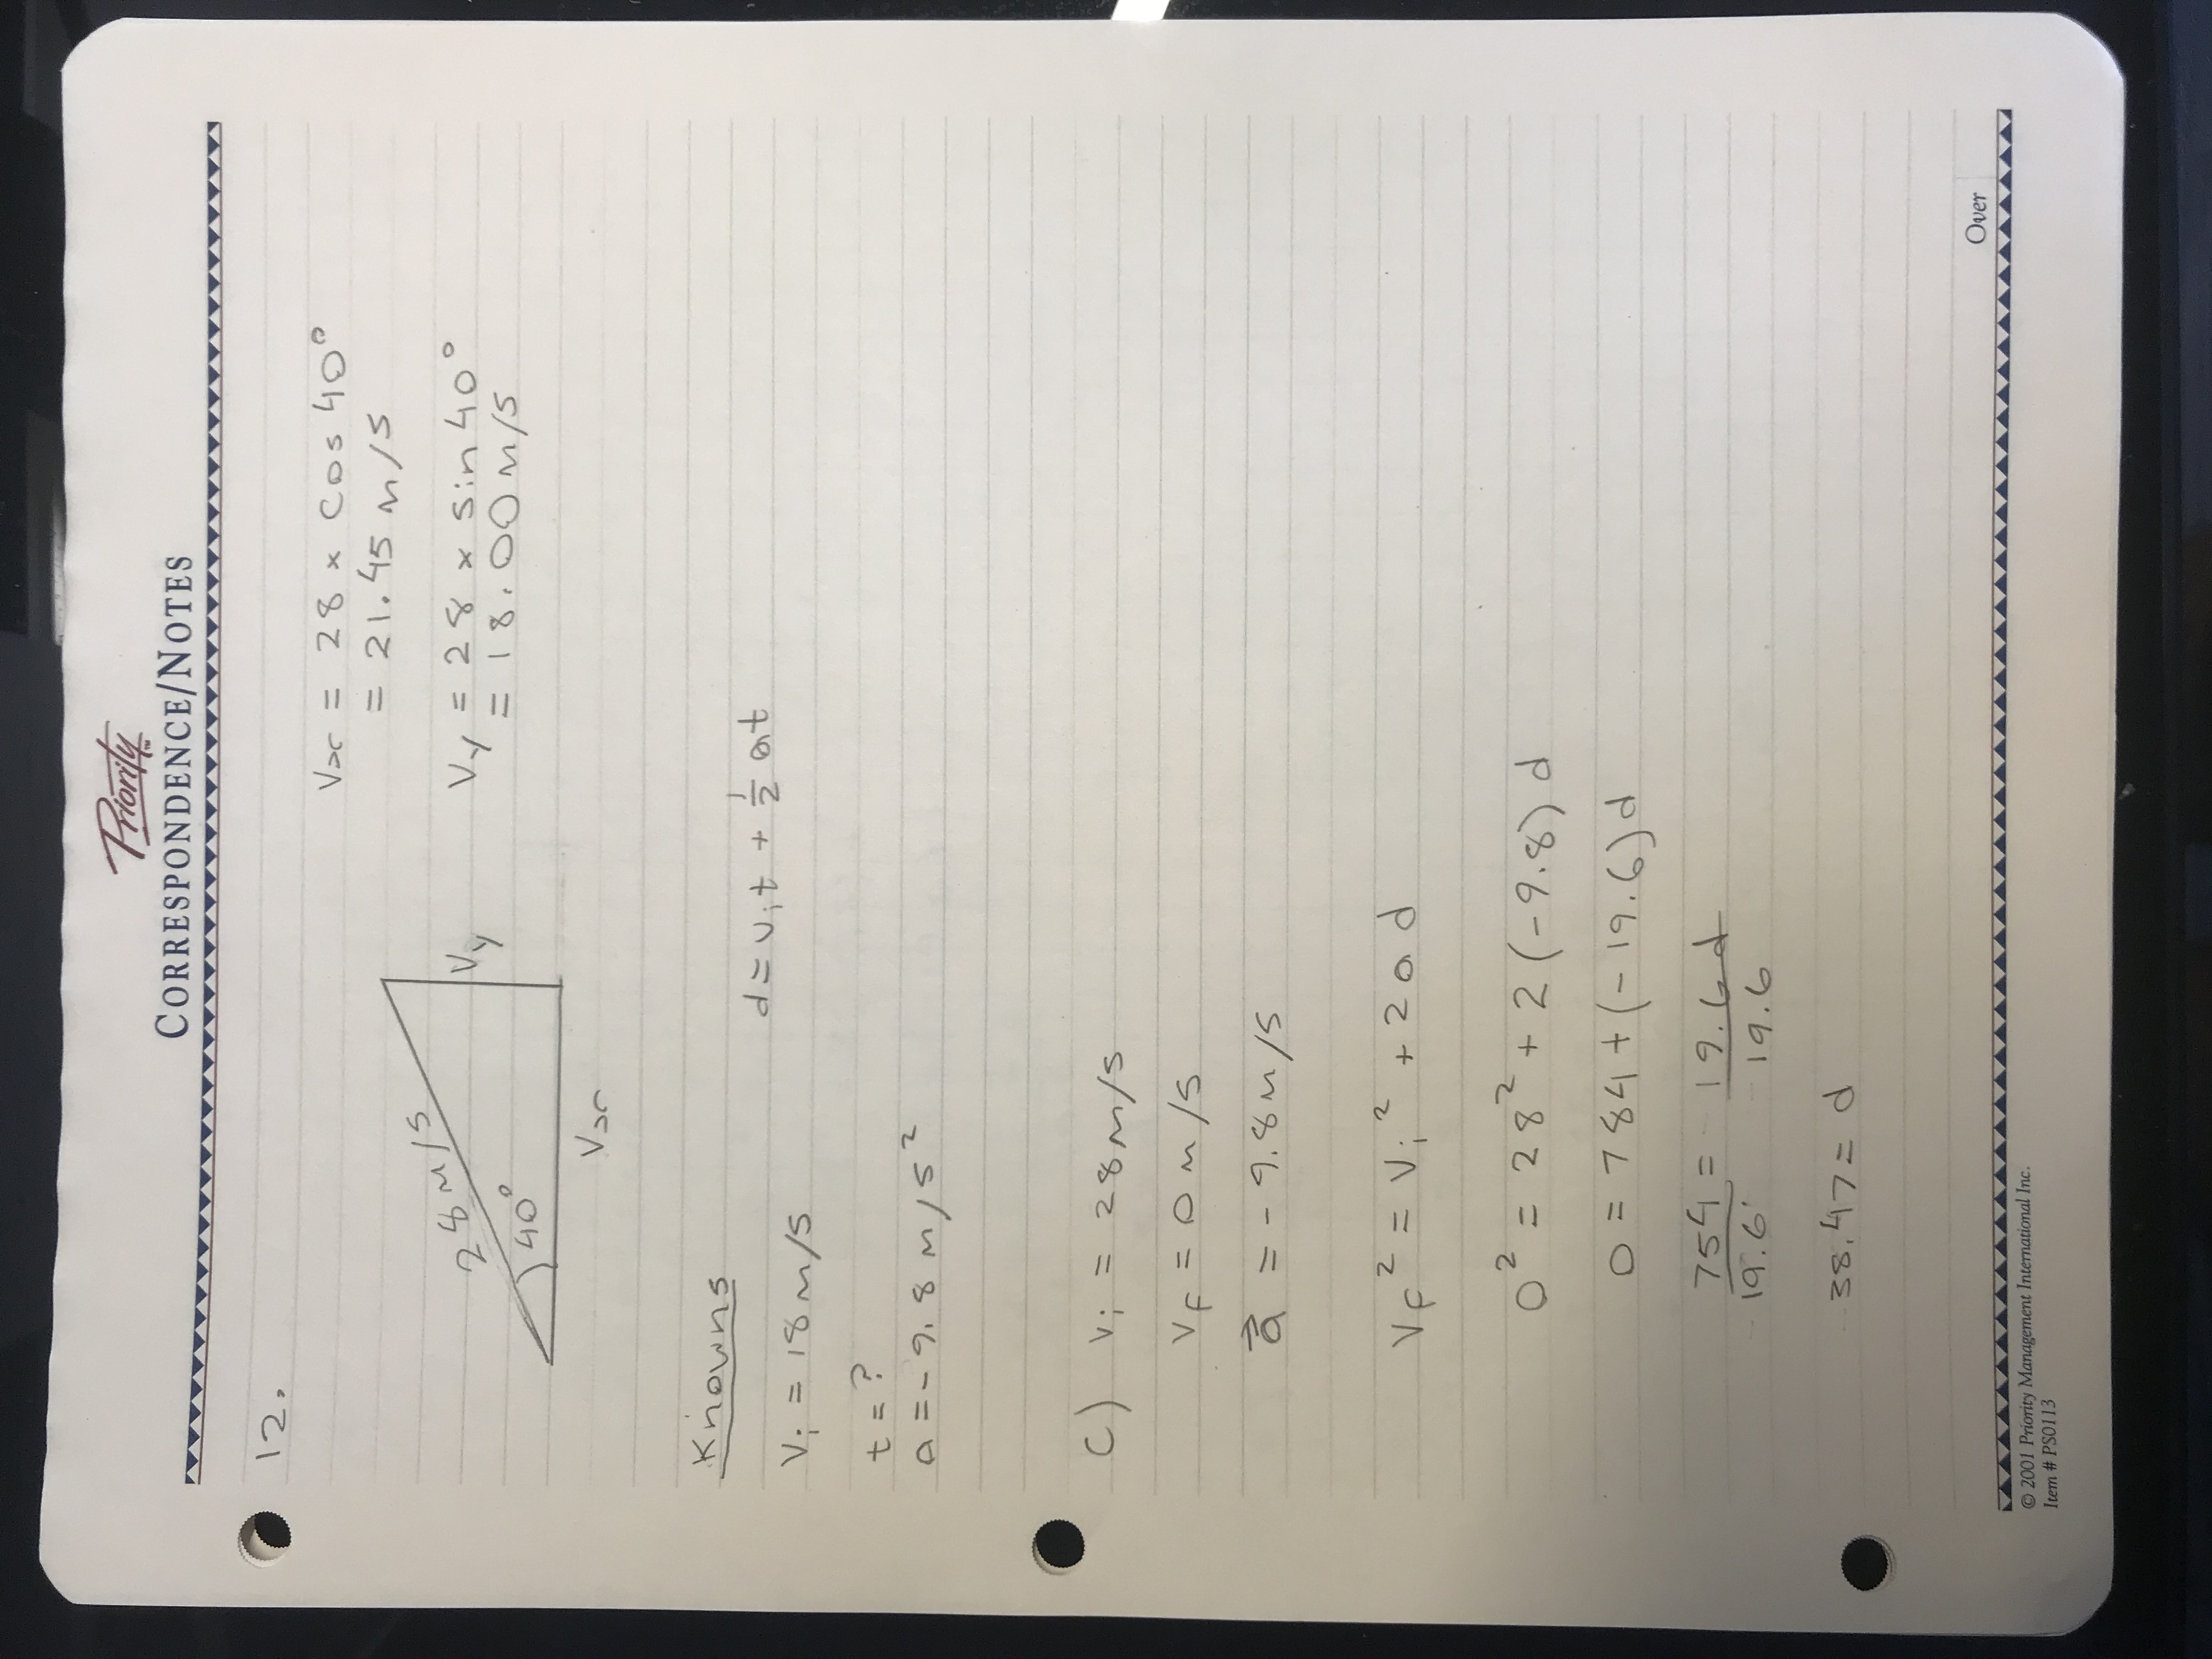 Priority™
CORRESPONDENCE/NOTES
12.
Vx = 28 x cos 40°
= 21.45 m/s
28 m/s
Vy
40°
Vx
Vy = 28 x sin 40°
= 18.00 m/s
Knowns
d = vit + 1/2 at
Vi = 18 m/s
t = ?
a = -9.8 m/s²
C) Vi = 28 m/s
VF = 0 m/s
a⃗ = -9.8 m/s
VF² = Vi² + 2 a d
0² = 28² + 2 (-9.8) d
0 = 784 + (-19.6) d
754 = 19.6 d
19.6 19.6
38.47 = d
Over
© 2001 Priority Management International Inc.
Item # PS0113